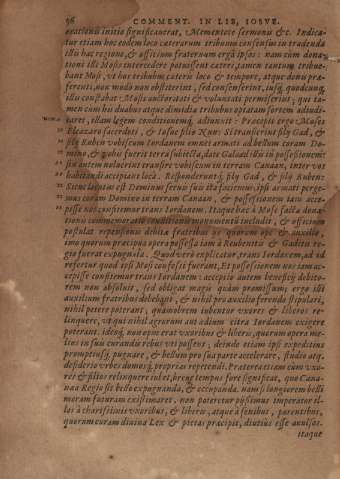 96 COMMENT. IN LIB. IOSVE.
orationis initio significauerat, Mementote sermonis &c. Indica-
tur etiam hoc eodem loco cæterarum tribuum consensus in tradenda
illis hac regione, & officium fraternum erga ipsos: nam cùm dona-
tioni illi Mosis intercedere potuissent cæteri, tamen tantùm tribue-
bant Mosi, vt hos tribuum cæteris loco & tempore, atque donis præ-
ferenti, non modo non obsisterint, sed consenserint, iusq́, quodcunq́,
illis constabat Mosis auctoritati & voluntati permiserint, qui ta-
men cùm his duabus atque dimidia tribubus optatam sortem adiudi-
caret, illam legem conditionemq́, adiunxit: Præcepit ergo Moses
Eleazaro sacerdoti, & Iosue filio Nun: Si transierint filij Gad, &
filij Ruben vobiscum Iordanem omnes armati ad bellum coram Do-
mino, & vobis fuerit terra subiecta, date Galaad illis in possessionem:
sin autem noluerint transire vobiscum in terram Canaan, inter vos
habitandi accipiant loca. Responderuntq́, filij Gad, & filij Ruben:
Sicut locutus est Dominus seruis suis ita faciemus: ipsi armati perge-
mus coram Domino in terram Canaan, & possessionem iam acce-
pisse nos confitemur trans Iordanem. Itaque hac à Mose facta dona-
tionis commemoratio conditionis monumentum includit, & officium
postulat repensionis debitæ fratribus & quorum ope & auxilio,
imo quorum præcipua opera possessa iam à Reubenitis & Gaditis re-
gio fuerat expugnata. Quod verò explicatur, trans Iordanem, ad id
refertur quod ipsi Mosi confessi fuerant, Et possessionem nos iam ac-
cepisse confitemur trans Iordanem: accepisse autem beneficij debito-
rem non absoluit, sed obligat magis quàm promissum; ergo illi
auxilium fratribus debebant, & nihil pro auxilio ferendo stipulari,
nihil petere poterant, quamobrem iubentur vxores & liberos re-
linquere, vt qui nihil agrorum aut ædium citra Iordanem exigere
poterant. ideoq́, neque opus erat vxoribus & liberis, quarum opera mo-
tos in sui curandis rebus vti possent; deinde etiam ipsi expeditius
promptiusq́, pugnare, & bellum pro sua parte accelerare, studio atq́,
desiderio vrbes domosq́, proprias repetendi. Præterea etiam cum vxo-
res & filios relinquere iubet, breui tempus fore significat, quo Cana-
naa Regio sit bello expugnanda, & occupanda. nam si longiorem belli
moram futuram existimaret. non pateretur pijssimus imperator il-
los à charissimis vxoribus, & liberis, atque à senibus, parentibus,
quorum curam diuina Lex & pietas præcipit, diutius esse auulsos.
itaque